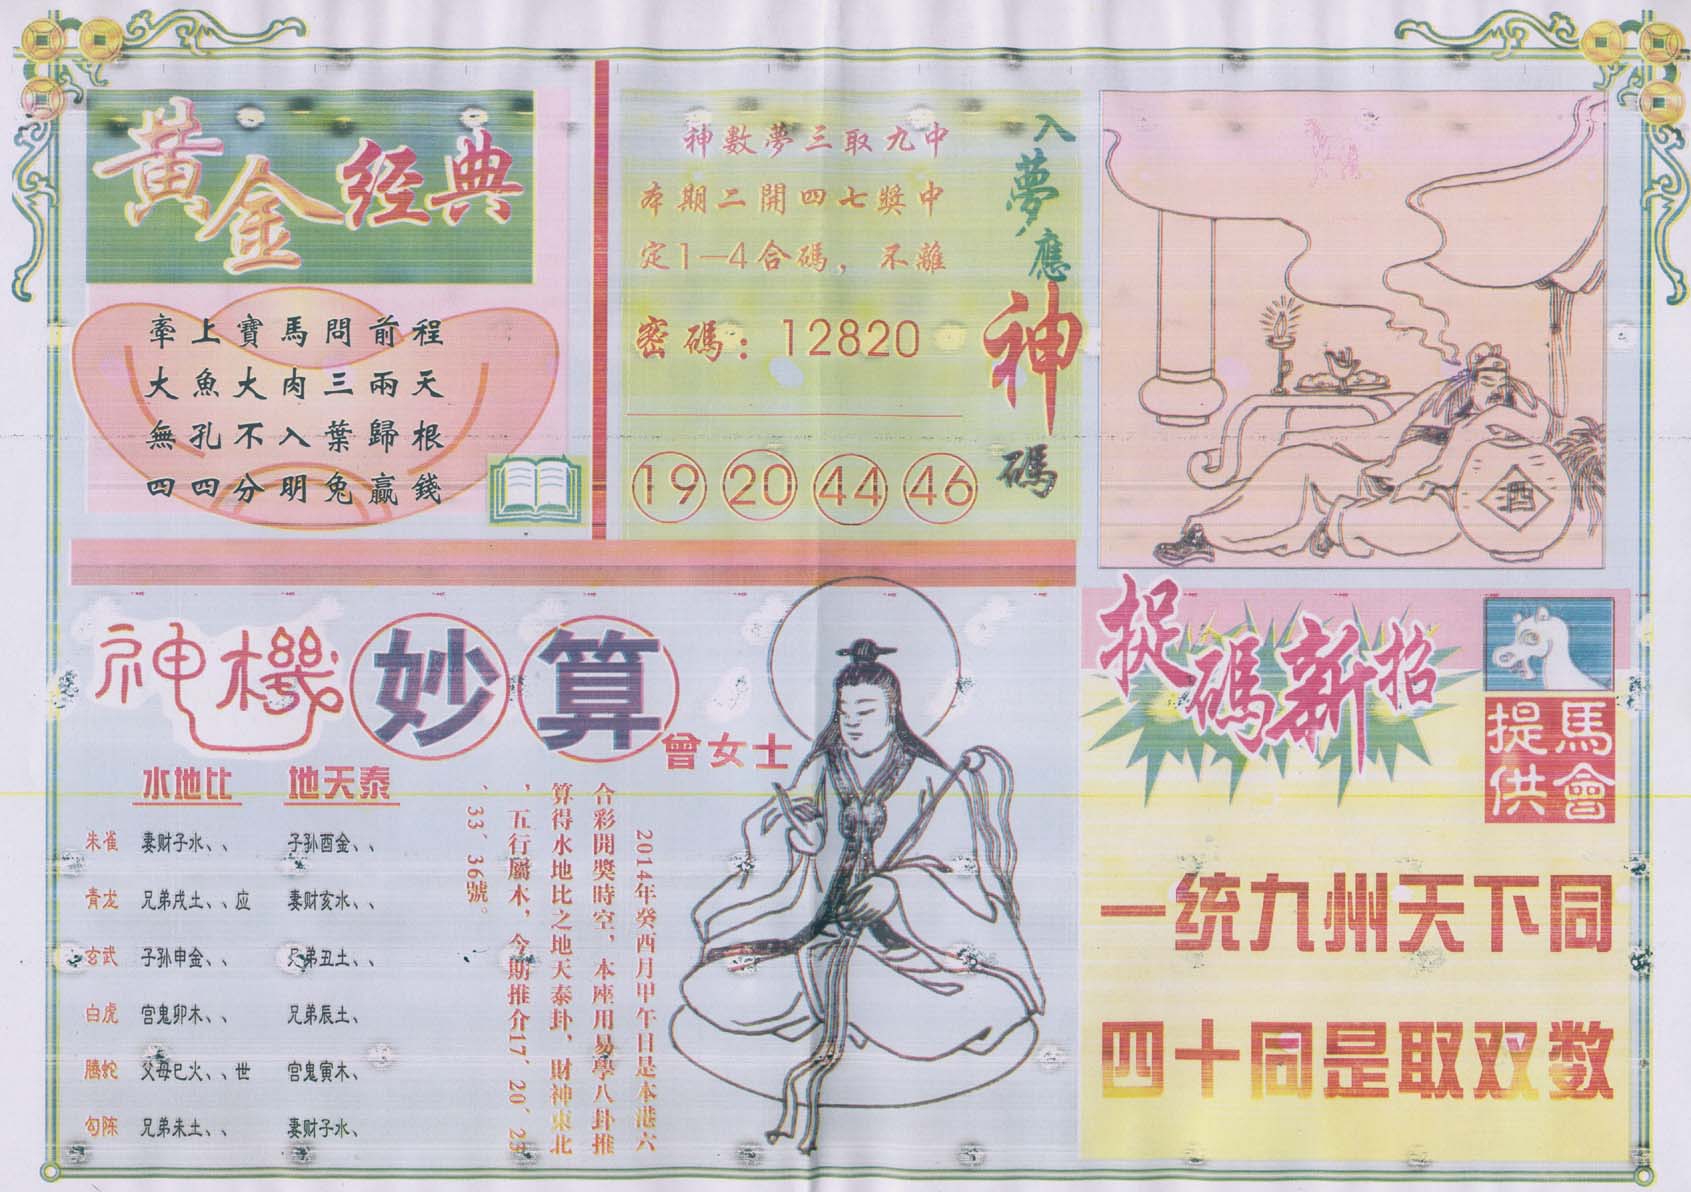 黃金经典
牽上寶馬問前程
大魚大肉三兩天
無孔不入葉歸根
四四分明兔贏錢
神數夢三取九中
本期二開四七獎中
定1—4合碼，不離
密碼：12820
19 20 44 46
入夢應神碼
酒
神機妙算
曾女士
水地比 地天泰
朱雀 妻财子水、、 子孙酉金、、
青龙 兄弟戌土、、应 妻财亥水、、
玄武 子孙申金、、 兄弟丑土、、
白虎 宫鬼卯木、、 兄弟辰土、
腾蛇 父母巳火、、世 宫鬼寅木、
勾陈 兄弟未土、、 妻财子水、
2014年癸酉月甲午日是本港六
合彩開獎時空，本座用易學八卦推
算得水地比之地天泰卦，財神東北
，五行屬木，今期推介17、20、23
、33、36號。
捉碼新招
馬會
提供
一统九州天下同
四十同是取双数